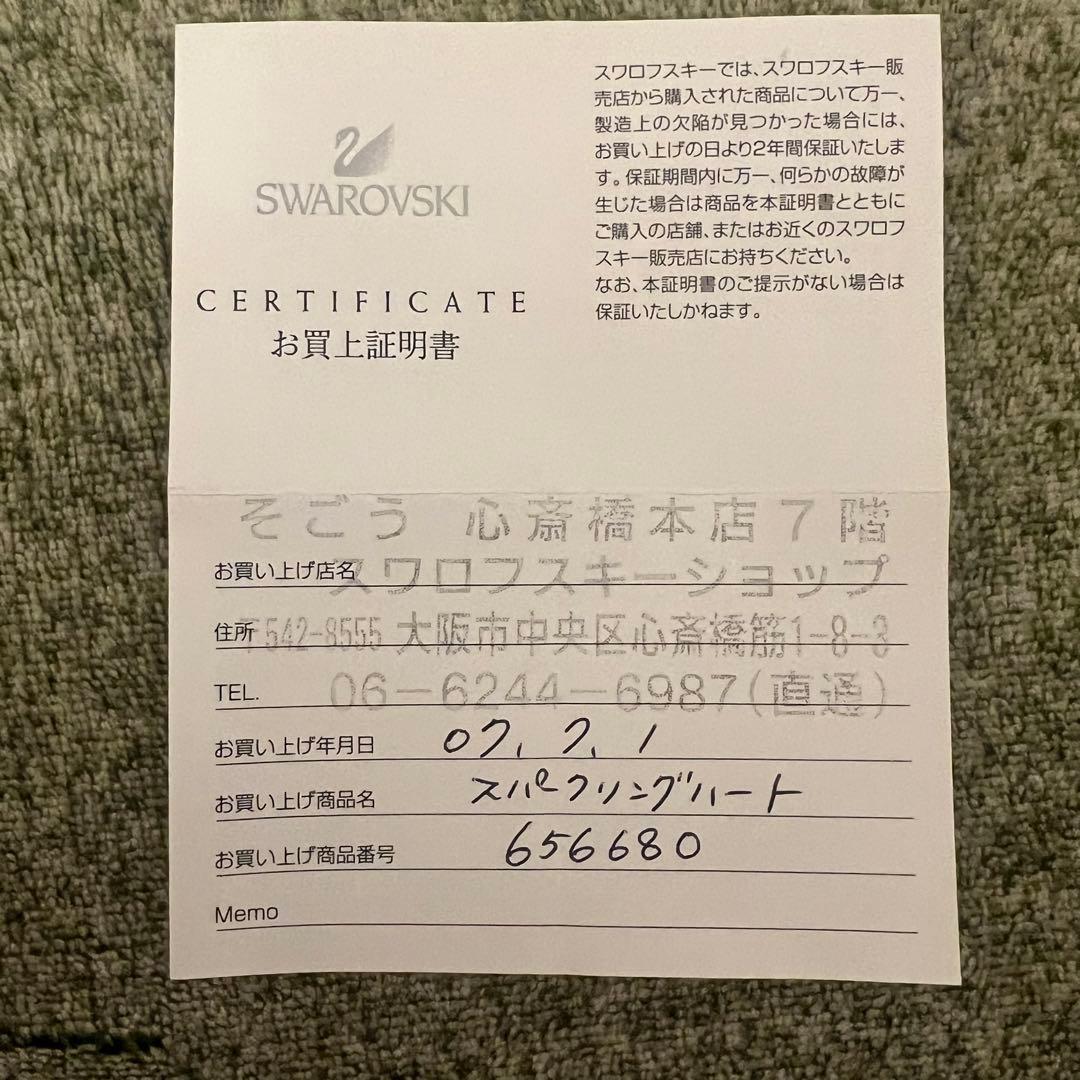 SWAROVSKI
CERTIFICATE
お買上証明書
スワロフスキーでは、スワロフスキー販
売店から購入された商品について万一、
製造上の欠陥が見つかった場合には、
お買い上げの日より2年間保証いたしま
す。保証期間内に万一、何らかの故障が
生じた場合は商品を本証明書とともに
ご購入の店舗、またはお近くのスワロフ
スキー販売店にお持ちください。
なお、本証明書のご提示がない場合は
保証いたしかねます。
そごう 心斎橋本店7階
お買い上げ店名 スワロフスキーショップ
住所 〒542-8555 大阪市中央区心斎橋筋1-8-3
TEL. 06-6244-6987(直通)
お買い上げ年月日 07.7.1
お買い上げ商品名 スパークリングハート
お買い上げ商品番号 656680
Memo